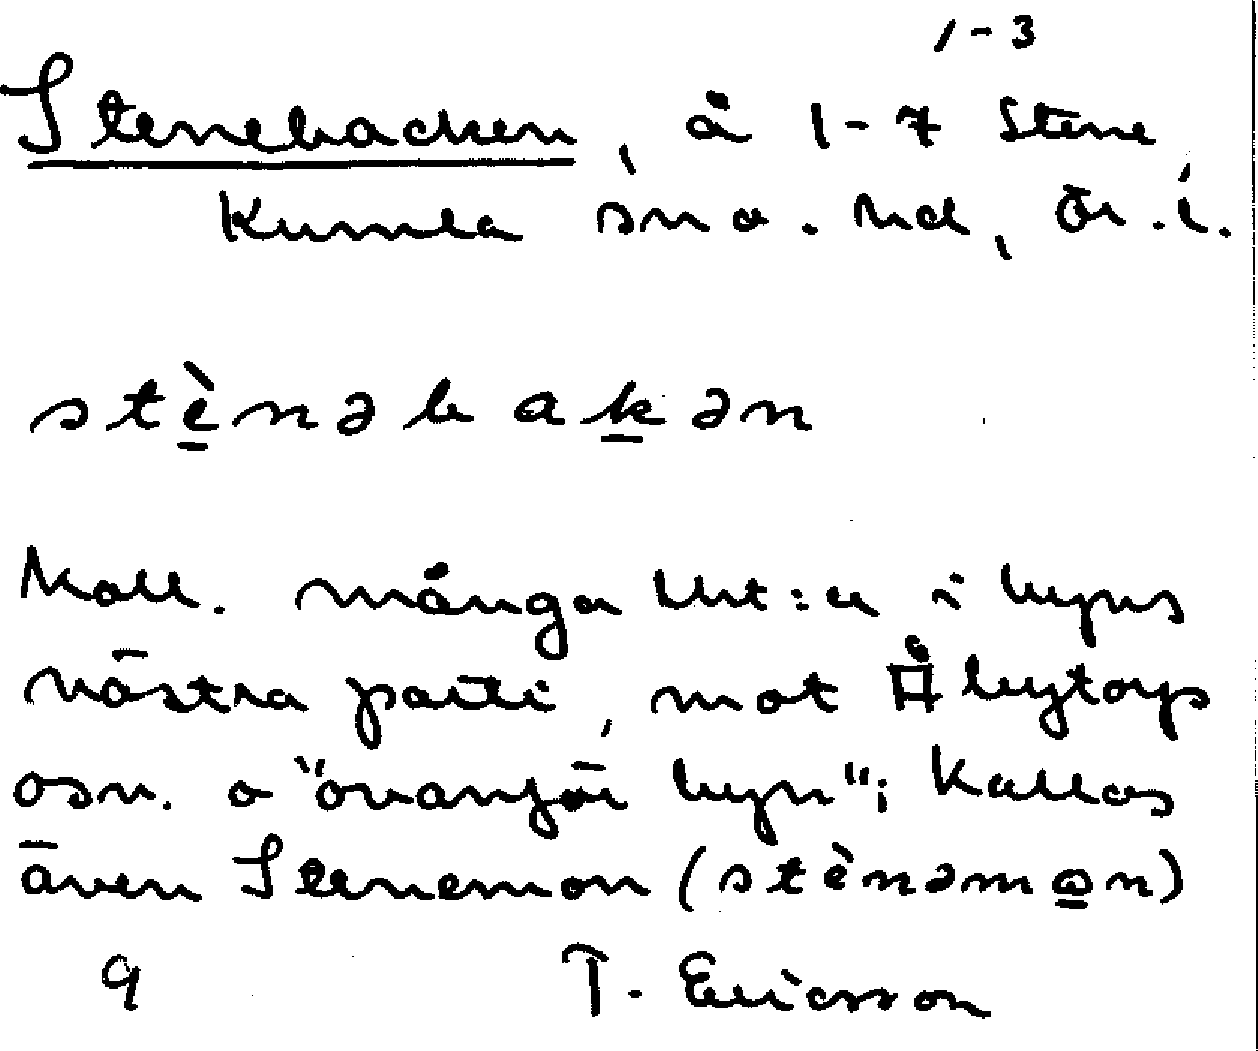 1-3
Stenebacken, å 1-7 Stene,
Kumla sn o. hd, Ör. l.
stènəbakən
Koll. många lht:er i byns
västra parti, mot Åbytorp
osn. o "ovanför byn"; kallas
även Stenemon (stènəmon)
9 T. Ericsson